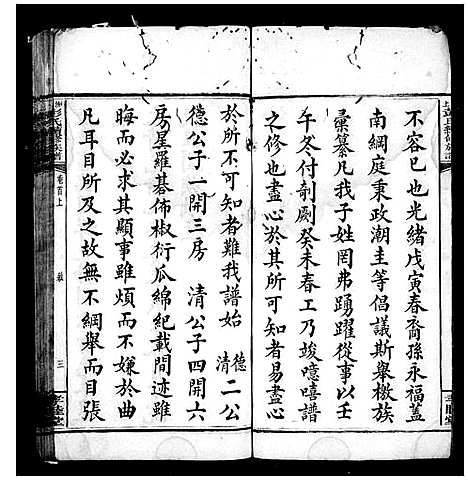 不容已也光緒戊寅春裔孫永福蓋
南綱庭秉政潮圭等倡議斯舉檄族
彙纂凡我子姓罔弗踴躍從事以壬
午冬付剞劂癸未春工乃竣噫嘻譜
之修也盡心於其所可知者易盡心
於所不可知者難我譜始德清二公
德公子一開三房清公子四開六
房星羅碁佈椒衍瓜綿紀載間迹雖
晦而必求其顯事雖煩而不嫌於曲
凡耳目所及之故無不綱舉而目張
卷首上
三